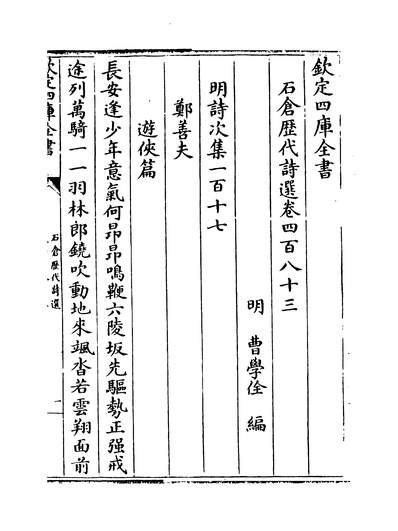 欽定四庫全書
石倉歷代詩選卷四百八十三
明 曹學佺 編
明詩次集一百十七
鄭善夫
遊俠篇
長安逢少年意氣何昂昂鳴鞭六陵坂先驅勢正强戒
途列萬騎一一羽林郎鐃吹動地來颯沓若雲翔面前
欽定四庫全書
石倉歷代詩選
一